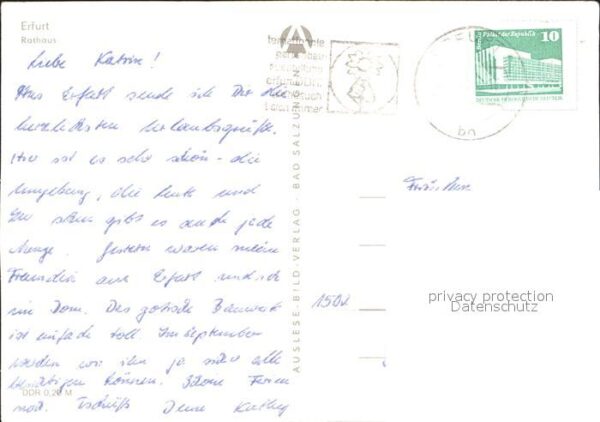 Erfurt
Rathaus
Liebe Katrin!
Aus Erfurt sende ich Dir die
herzlichsten Urlaubsgrüße.
Hier ist es sehr schön - die
Umgebung, die Leute und
zu sehen gibt es auch jede
Menge. Gestern waren meine
Freundin aus Erfurt und ich
im Dom. Das gotische Bauwerk
ist einfach toll. Im September
werden wir ihn ja alle
besichtigen können. Schöne Ferien
noch. Tschüß Deine Kathy
DDR 0,20 M
AUSLESE-BILD-VERLAG · BAD SALZUNGEN
erfurt
immer
bn
Berlin Palast der Republik
10
DEUTSCHE DEMOKRATISCHE REPUBLIK
1501
privacy protection
Datenschutz